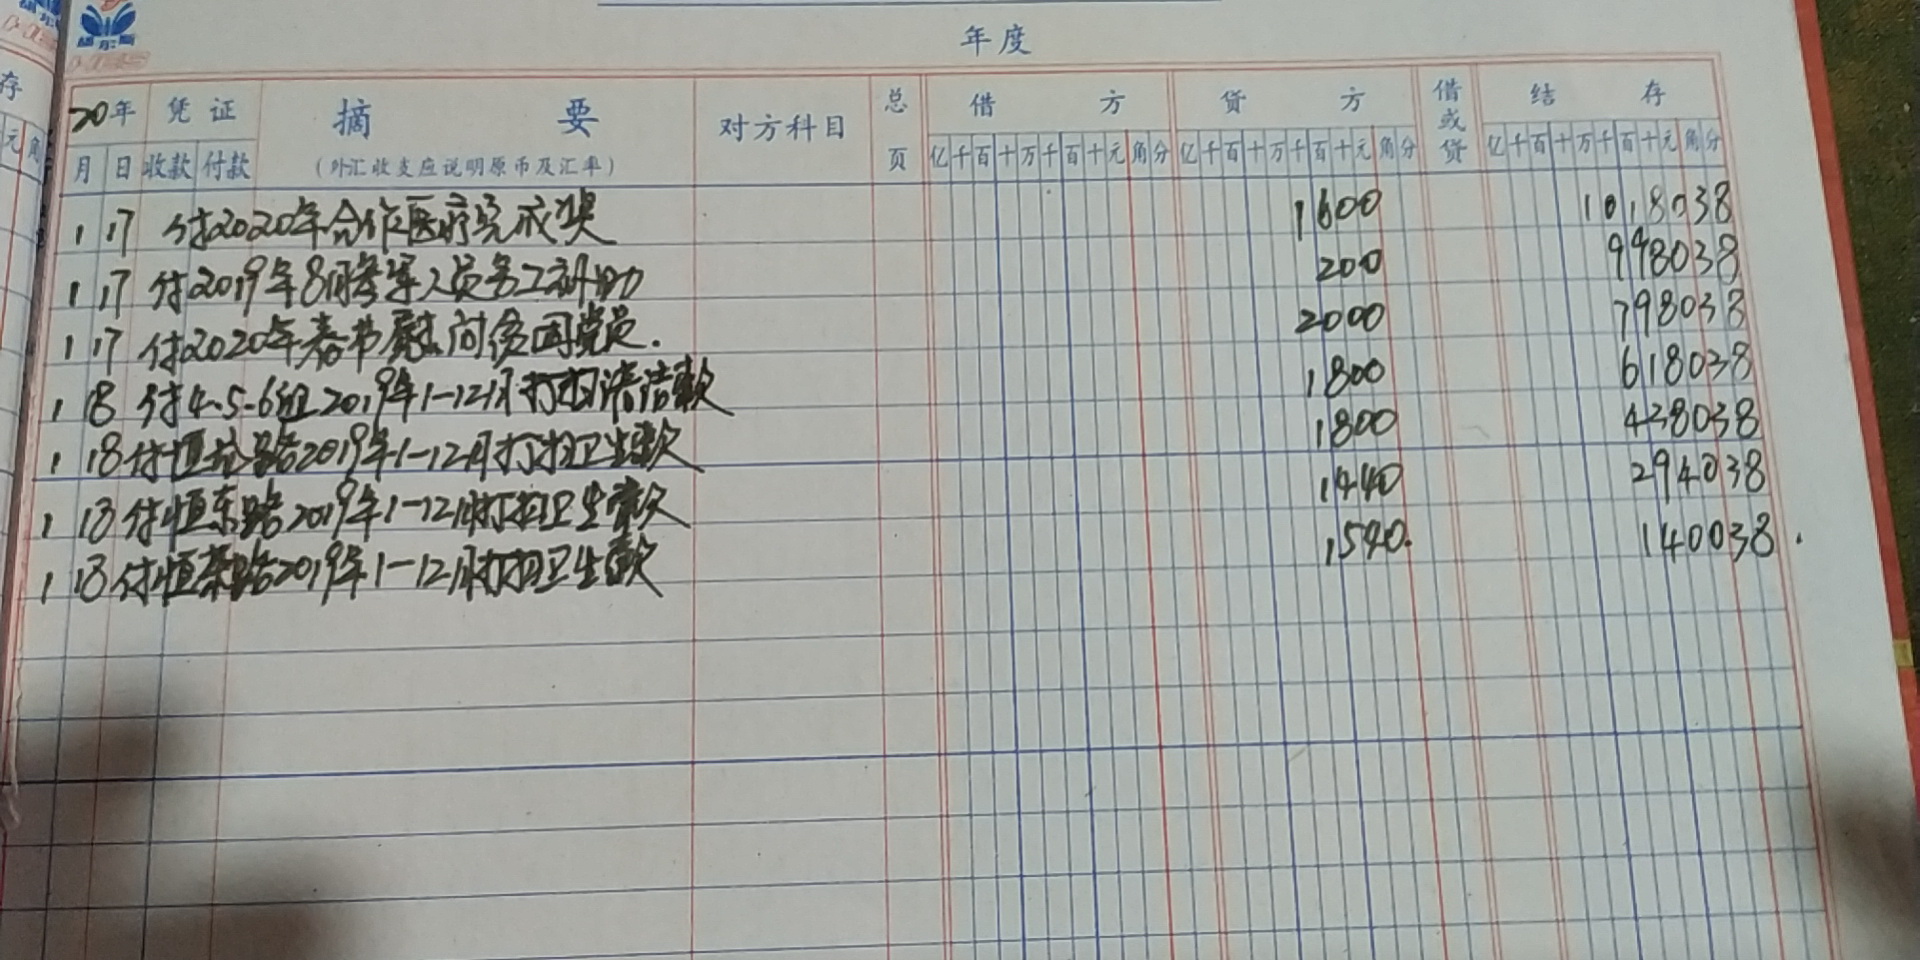 年度
20年 凭证 摘要 对方科目 总页 借方 贷方 借或贷 结存
月 日 收款 付款 (外汇收支应说明原币及汇率) 亿千百十万千百十元角分 亿千百十万千百十元角分 亿千百十万千百十元角分
1 17 付2020年合作医疗完成奖 1600 1018038
1 17 付2019年8月参军人员务工补助 200 998038
1 17 付2020年春节慰问贫困党员. 2000 798038
1 18 付4.5.6组2019年1-12月打扫清洁款 1800 618038
1 18 付恒龙路2019年1-12月打扫卫生款 1800 438038
1 18 付恒东路2019年1-12月打扫卫生款 1440 294038
1 18 付恒泰路2019年1-12月打扫卫生款 1540. 140038.